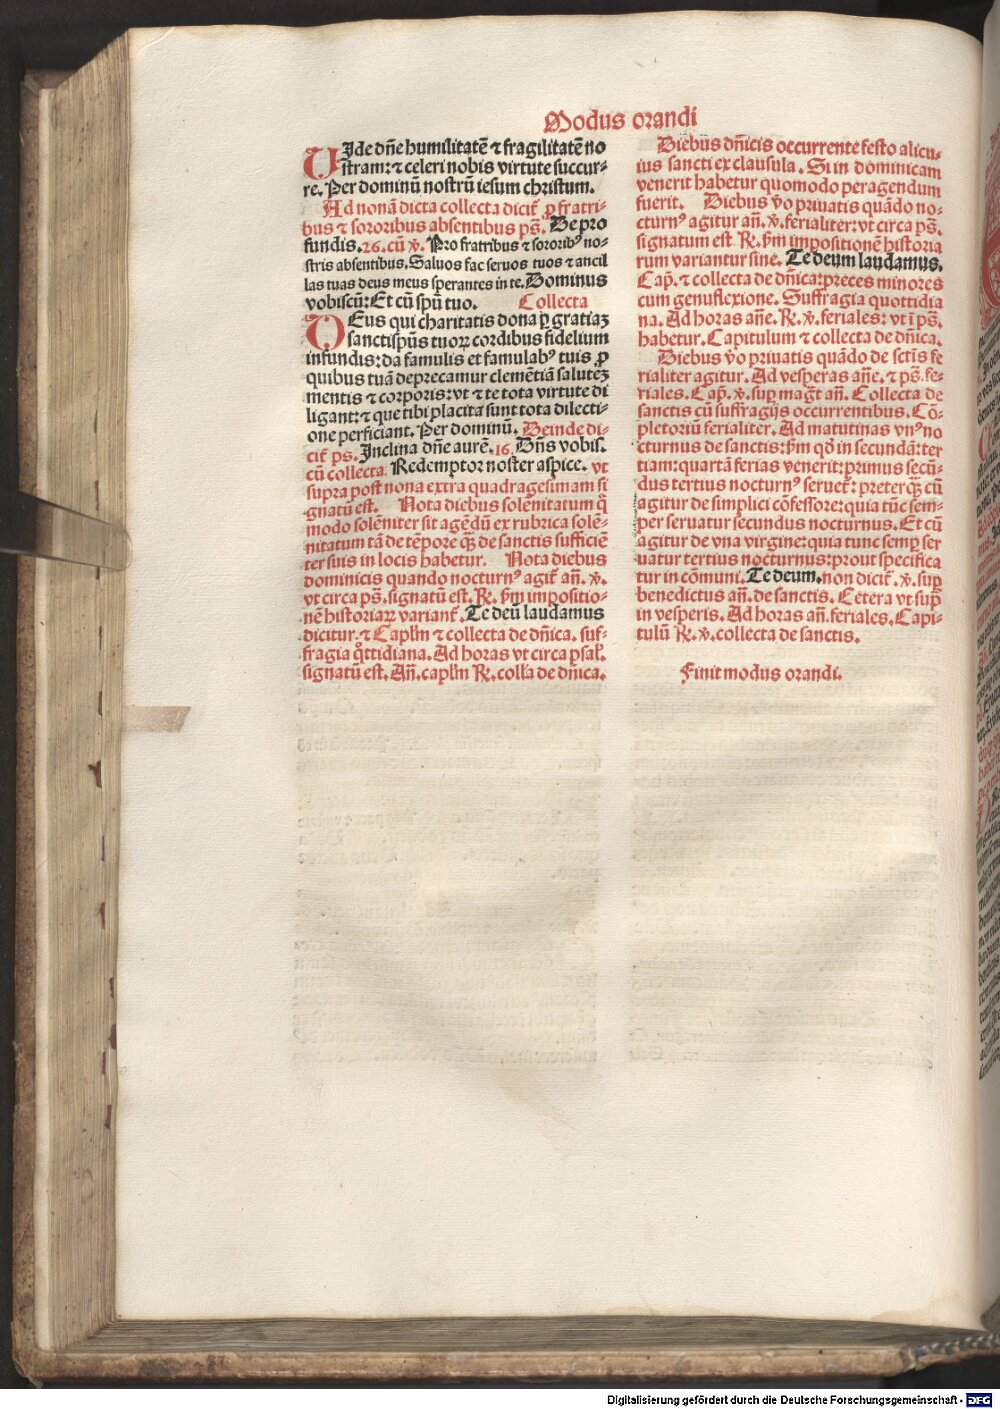 Modus orandi
VIde dñe humilitatē ⁊ fragilitatē no
stram: ⁊ celeri nobis virtute succur-
re. Per dominū nostrū iesum christum.
Ad nonā dicta collecta dicit᷑ ꝓ fratri-
bus ⁊ sororibus absentibus ps̄. De pro
fundis. 26. cū v̄. Pro fratribus ⁊ sororibꝰ no-
stris absentibus. Saluos fac seruos tuos ⁊ ancil
las tuas deus meus sperantes in te. Dominus
vobiscū: Et cū spū tuo. Collecta
DEus qui charitatis dona ꝑ gratiaꝫ
sanctispūs tuoꝝ cordibus fidelium
infundis: da famulis et famulabꝰ tuis ꝓ
quibus tuā deprecamur clemētiā saluteꝫ
mentis ⁊ corporis: vt ⁊ te tota virtute di
ligant: ⁊ que tibi placita sunt tota dilecti-
one perficiant. Per dominū. Deinde di-
cit᷑ ps. Inclina dñe aurē. 16. Dñs vobis.
cū collecta. Redemptor noster aspice. vt
supra post nona extra quadragesimam si
gnatū est. Nota diebus solēnitatum q̊
modo solēniter sit agēdū ex rubrica solē-
nitatum tā de tēpore qꝫ̄ de sanctis sufficiē
ter suis in locis habetur. Nota diebus
dominicis quando nocturnꝰ agit᷑ añ. v̄.
vt circa ps̄. signatū est. R̄. ṗm impositio-
nē historiaꝝ variant᷑. Te deū laudamus
dicitur. ⁊ Caplm̄ ⁊ collecta de dñica. suf-
fragia q̊ttidiana. Ad horas vt circa psal.
signatū est. Añ. caplm̄ R̄. colla de dñica.
Diebus dñicis occurrente festo alicu-
ius sancti ex clausula. Si in dominicam
venerit habetur quomodo peragendum
fuerit. Diebus v̊o priuatis quādo no-
cturnꝰ agitur añ. v̄. ferialiter: vt circa ps̄.
signatum est R̄. ṗm impositionē historia
rum variantur sine. Te deum laudamus.
Cap̄. ⁊ collecta de dñica: preces minores
cum genuflexione. Suffragia quottidia
na. Ad horas añe. R̄. v̄. feriales: vt ī ps̄.
habetur. Capitulum ⁊ collecta de dñica.
Diebus v̊o priuatis quādo de sctīs fe
rialiter agitur. Ad vesperas añe. ⁊ ps̄. fe-
riales. Cap̄. v̄. suꝑ magt̄ añ. Collecta de
sanctis cū suffragijs occurrentibus. Cō-
pletoriū ferialiter. Ad matutinas vnꝰ no
cturnus de sanctis: ṗm qd̄ in secundā: ter
tiam: quartā ferias venerit: primus secū-
dus tertius nocturnꝰ seruet᷑: preter qꝫ̄ cū
agitur de simplici cōfessore: quia tūc sem-
per seruatur secundus nocturnus. Et cū
agitur de vna virgine: quia tunc semꝑ ser
uatur tertius nocturnus: prout specifica
tur in cōmuni. Te deum. non dicit᷑. v̄. suꝑ
benedictus añ. de sanctis. Cetera vt supͣ
in vesperis. Ad horas añ. feriales. Capi-
tulū R̄. v̄. collecta de sanctis.
Finit modus orandi.
Digitalisierung gefördert durch die Deutsche Forschungsgemeinschaft - DFG